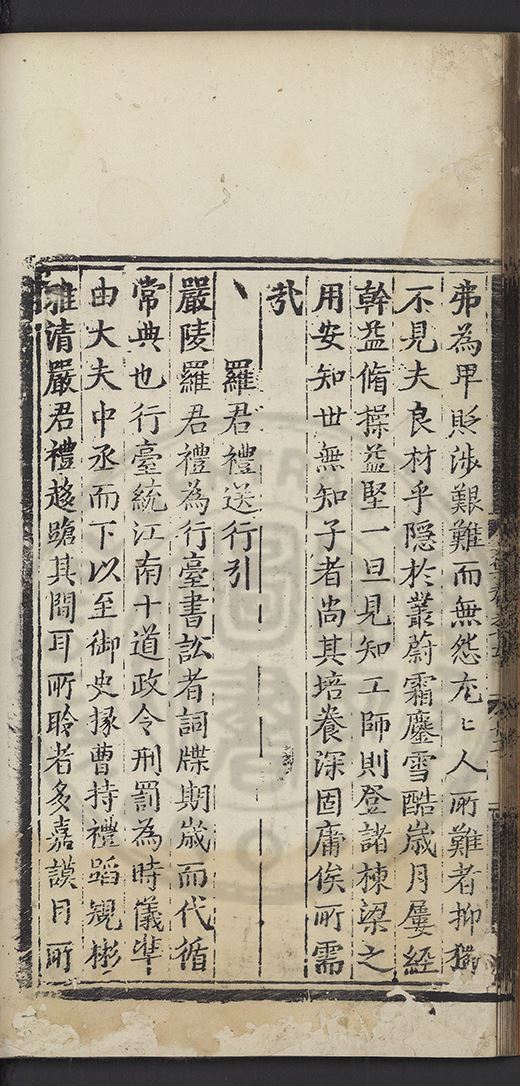 弗為卑貶涉艱難而無怨尤亡人所難者抑獨
不見夫良材乎隱於叢蔚霜鏖雪酷歲月屢經
幹益脩操益堅一旦見知工師則登諸棟梁之
用安知世無知子者尚其培養深固庸俟所需
哉
羅君禮送行引
嚴陵羅君禮為行臺書訟者詞牒期歲而代循
常典也行臺統江南十道政令刑罰為時儀準
由大夫中丞而下以至御史掾曹持禮蹈䂓彬
雅清嚴君禮趍蹌其間耳所聆者多嘉謨月所